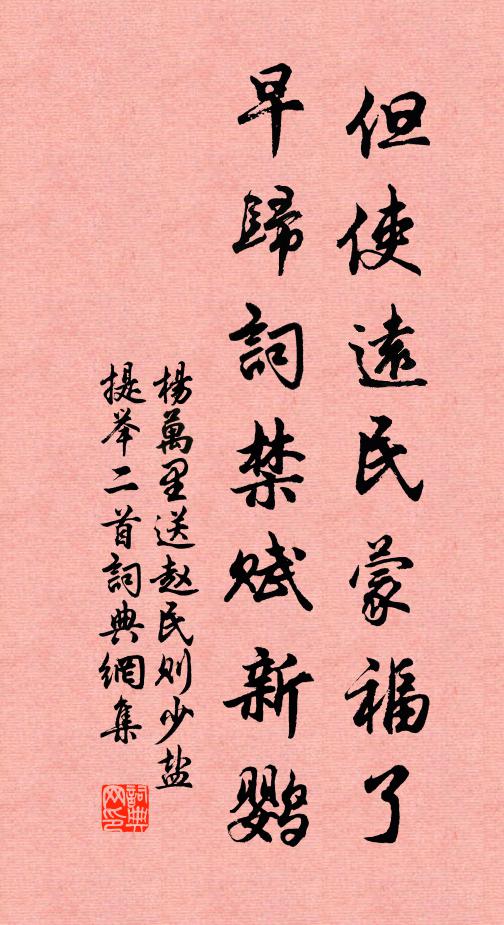 但使遠民蒙福了
早歸詞禁賦新鹦
楊萬里送赵民则少盐
提举二首詞典網集
詞典网印